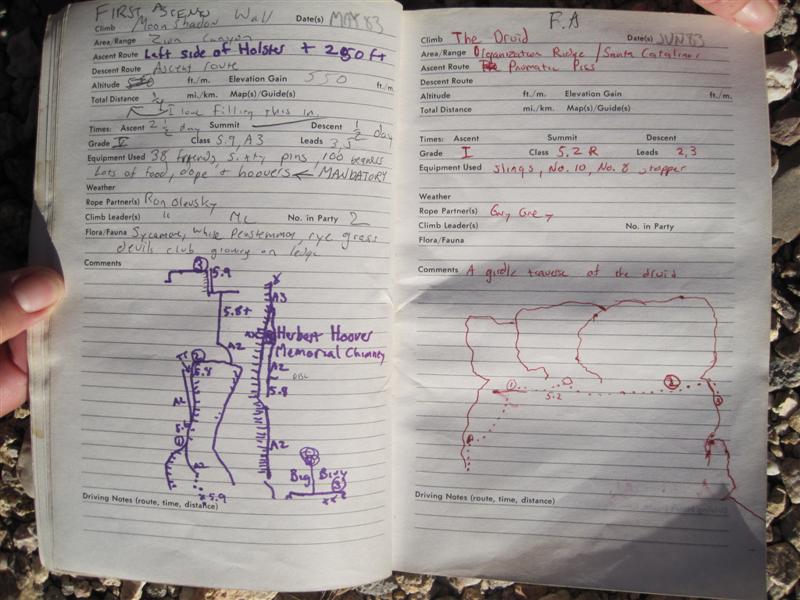 FIRST ASCENT
Climb Moon Shadow Wall Date(s) MAY 83
Area/Range Zion Canyon
Ascent Route Left side of Holster + 250 ft
Descent Route Ascent route
Altitude ft./m. Elevation Gain 550 ft./m.
Total Distance mi./km. Map(s)/Guide(s)
I love filling this in.
Times: Ascent 2 1/2 day Summit Descent 1/2 day
Grade V Class 5.9, A3 Leads 3,5
Equipment Used 38 friends, sixty pins, 100 beaners
Lots of food, dope + hoovers ← MANDATORY
Weather
Rope Partner(s) Ron Olevsky
Climb Leader(s) " Me No. in Party 2
Flora/Fauna Sycamore, White Penstemmon, rye grass
devils club growing on ledge
Comments
3 5.9
A3
5.8+
Herbert Hoover
Memorial Chimney
A2
A2
2
5.8
5.8
A2
1
A2
A2
Big Bivy
3
x 5.9
Driving Notes (route, time, distance)
F.A
Climb The Druid Date(s) JUN 83
Area/Range Organization Ridge / Santa Catalinas
Ascent Route Pnumatic Pigs
Descent Route
Altitude ft./m. Elevation Gain ft./m.
Total Distance mi./km. Map(s)/Guide(s)
Times: Ascent Summit Descent
Grade I Class 5.2 R Leads 2,3
Equipment Used slings, No. 10, No. 8 stopper
Weather
Rope Partner(s)
Climb Leader(s) No. in Party
Flora/Fauna
Comments A girdle traverse of the druid
1 2
5.2
3
Driving Notes (route, time, distance)